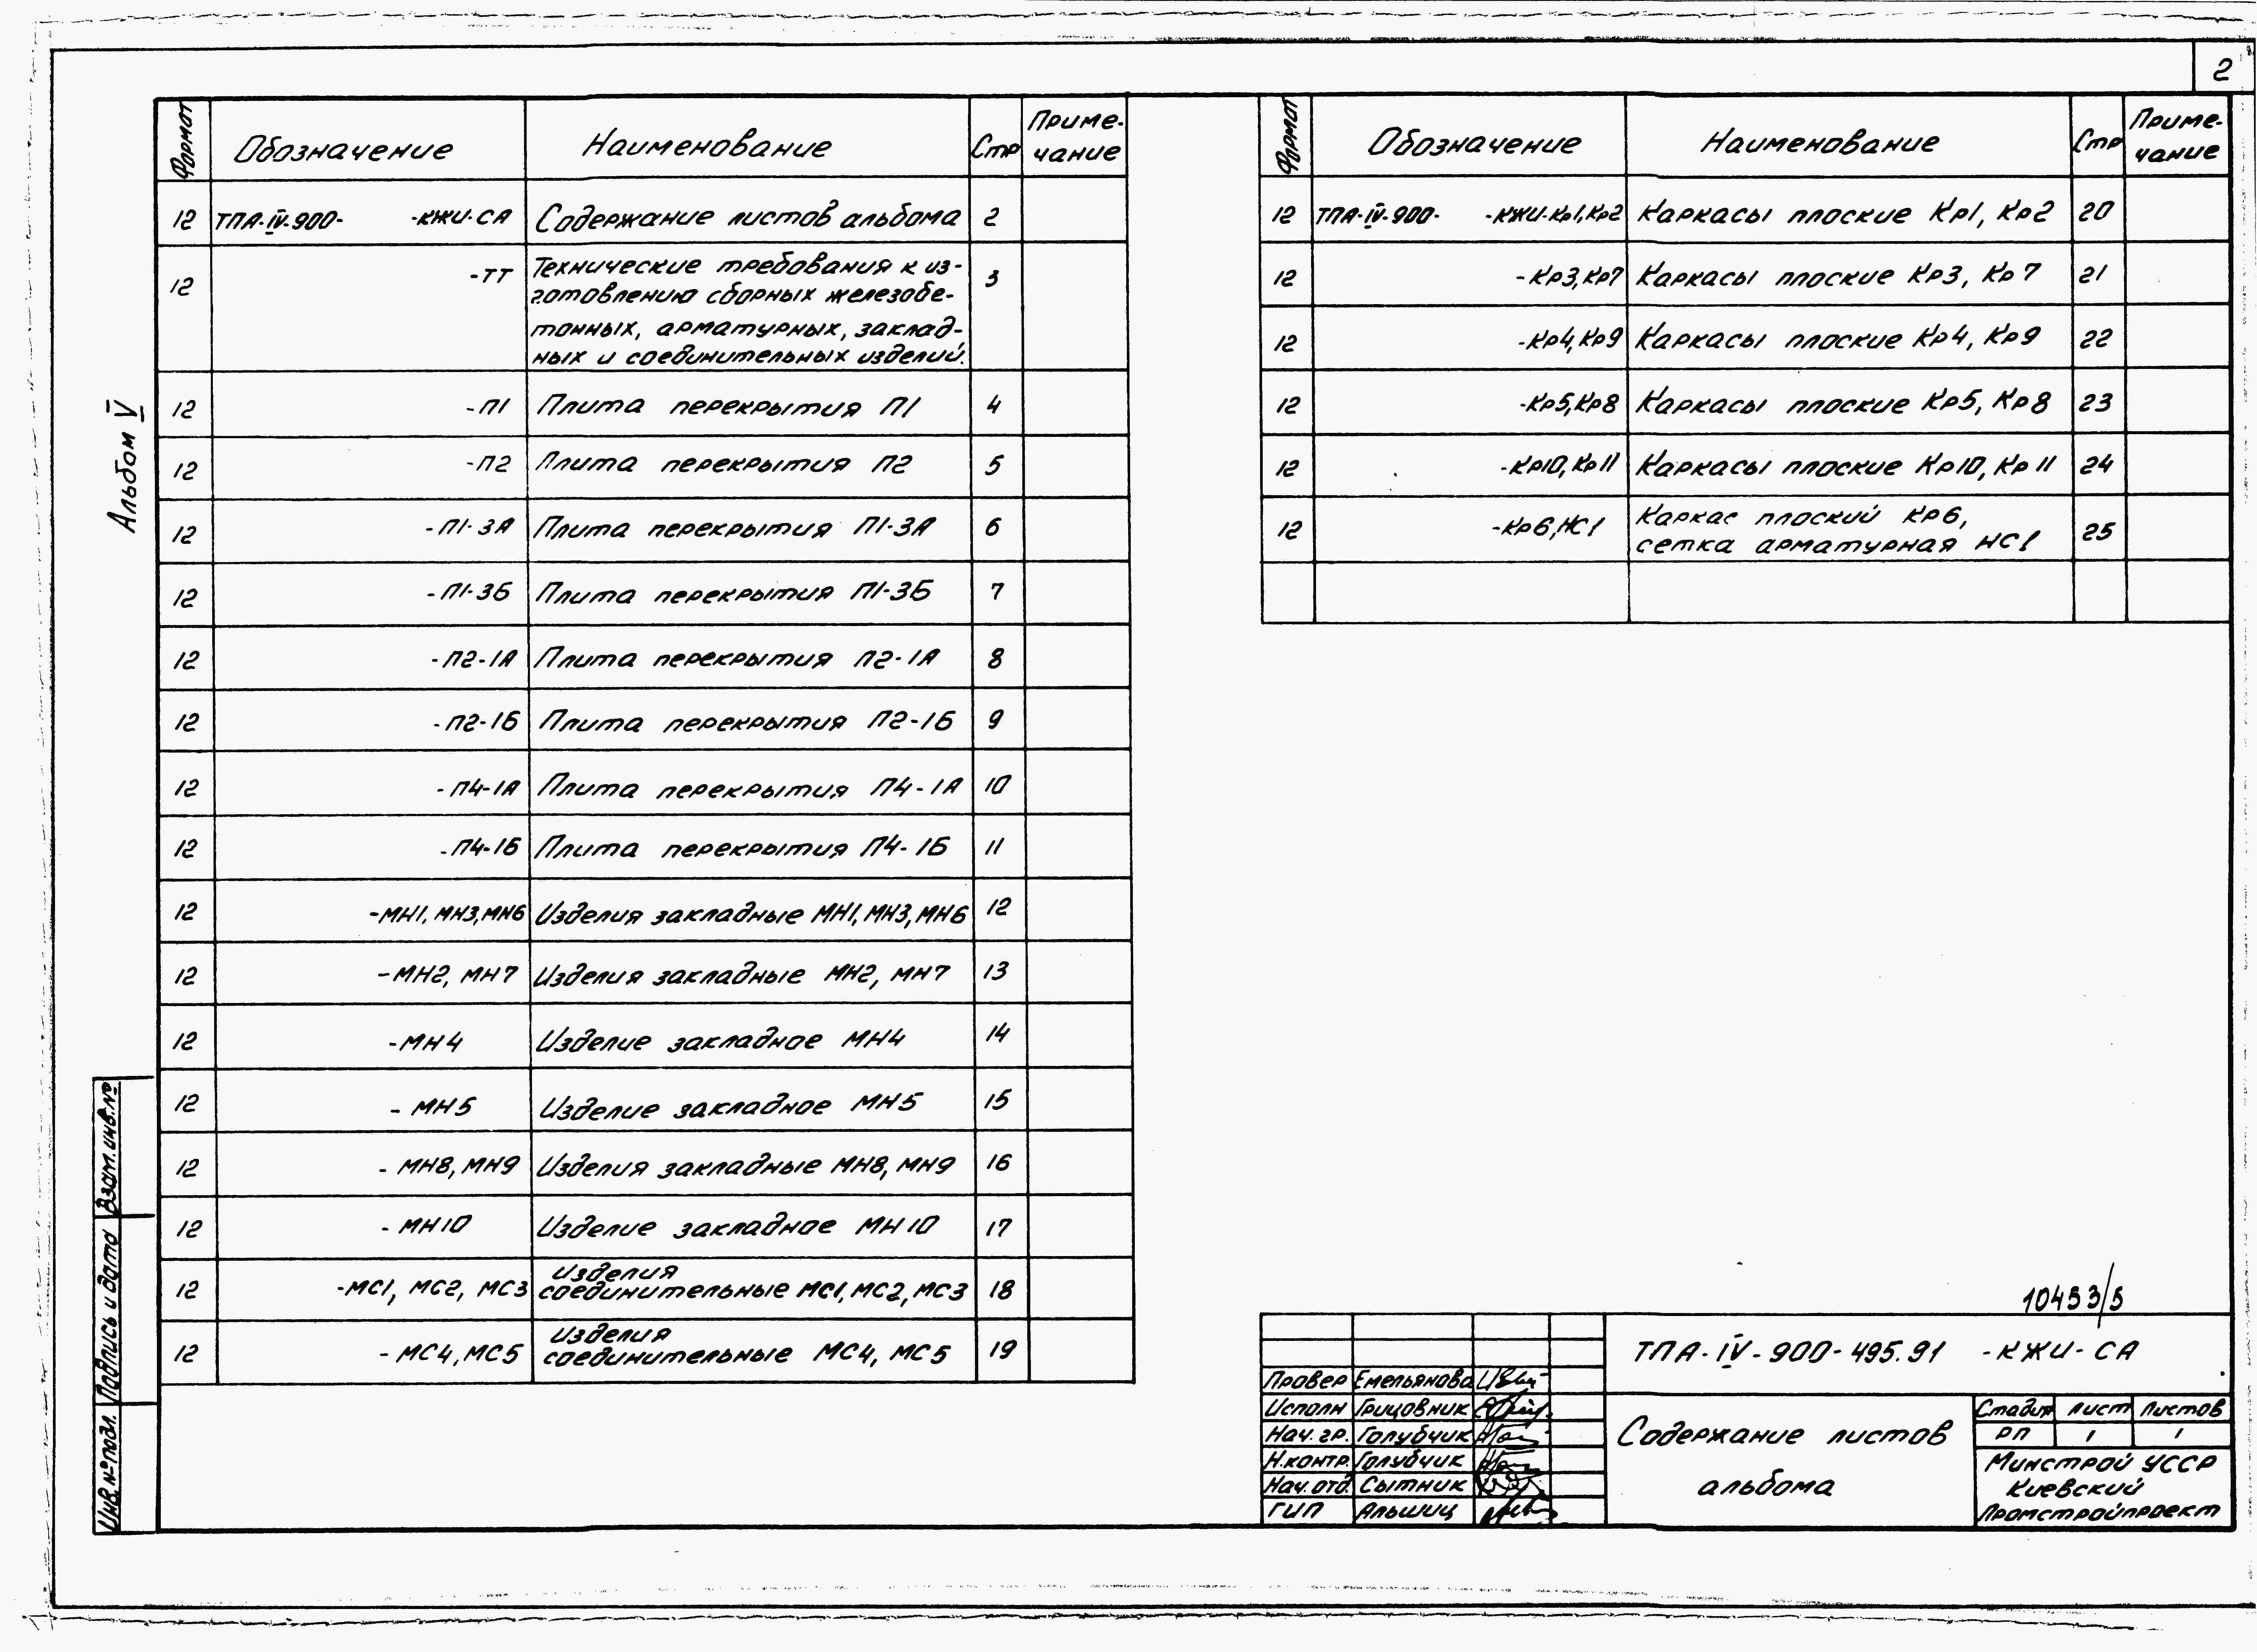 2
Альбом V
Формат Обозначение Наименование Стр Приме-
чание
12 ТПА-IV-900- -КЖИ-СА Содержание листов альбома 2
12 -ТТ Технические требования к из- 3
готовлению сборных железобе-
тонных, арматурных, заклад-
ных и соединительных изделий.
12 -П1 Плита перекрытия П1 4
12 -П2 Плита перекрытия П2 5
12 -П1-3А Плита перекрытия П1-3А 6
12 -П1-3Б Плита перекрытия П1-3Б 7
12 -П2-1А Плита перекрытия П2-1А 8
12 -П2-1Б Плита перекрытия П2-1Б 9
12 -П4-1А Плита перекрытия П4-1А 10
12 -П4-1Б Плита перекрытия П4-1Б 11
12 -МН1, МН3, МН6 Изделия закладные МН1, МН3, МН6 12
12 -МН2, МН7 Изделия закладные МН2, МН7 13
12 -МН4 Изделие закладное МН4 14
12 -МН5 Изделие закладное МН5 15
12 -МН8, МН9 Изделия закладные МН8, МН9 16
12 -МН10 Изделие закладное МН10 17
Изделия
12 -МС1, МС2, МС3 соединительные МС1, МС2, МС3 18
Изделия
12 -МС4, МС5 соединительные МС4, МС5 19
Формат Обозначение Наименование Стр Приме-
чание
12 ТПА-IV-900- -КЖИ-Кр1, Кр2 Каркасы плоские Кр1, Кр2 20
12 -Кр3, Кр7 Каркасы плоские Кр3, Кр7 21
12 -Кр4, Кр9 Каркасы плоские Кр4, Кр9 22
12 -Кр5, Кр8 Каркасы плоские Кр5, Кр8 23
12 -Кр10, Кр11 Каркасы плоские Кр10, Кр11 24
12 -Кр6, НС1 Каркас плоский Кр6, 25
сетка арматурная НС1
Взам. инв. №
Подпись и дата
Инв. № подл.
10453/5
ТПА-IV-900-495.91 -КЖИ-СА
Провер Емельянова
Исполн Грицовник
Нач. гр. Голубчик
Н.контр. Голубчик
Нач. отд. Сытник
ГИП Альшиц
Содержание листов
альбома
Стадия Лист Листов
РП 1 1
Минстрой УССР
Киевский
Промстройпроект